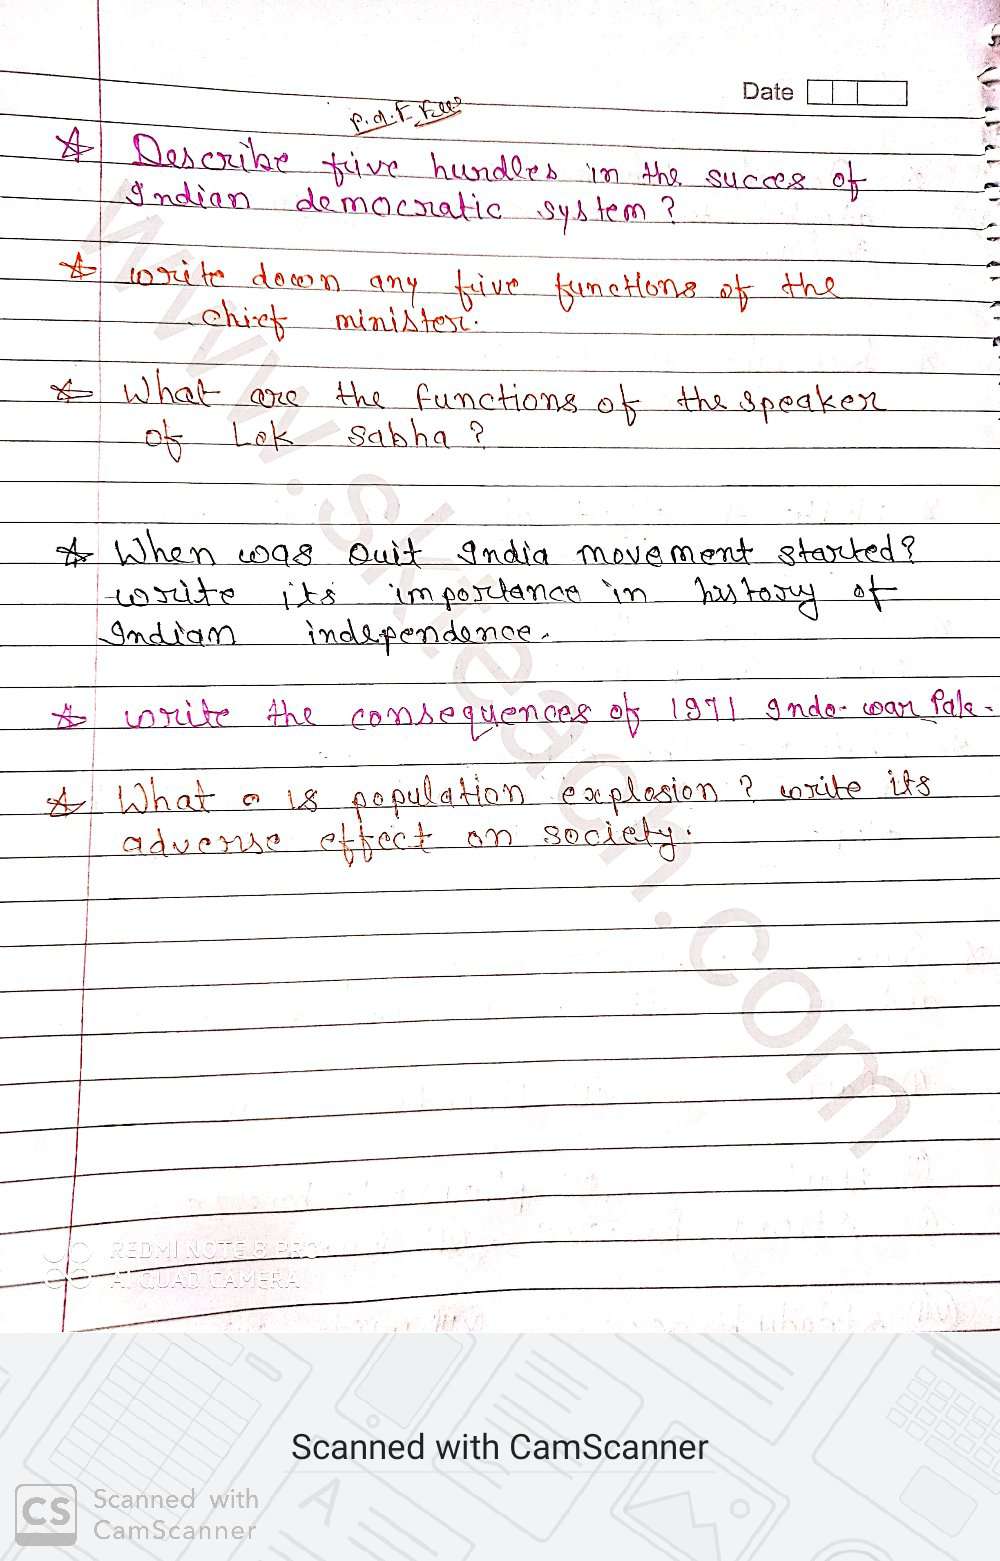 Date
p.d.F. Free
Describe five hurdles in the succes of
Indian democratic system?
write down any five functions of the
chief minister.
What are the functions of the speaker
of Lok Sabha?
When was Quit India movement started?
write its importance in history of
Indian independence.
write the consequences of 1971 Indo-war Pak.
What is population explosion? write its
adverse effect on society.
www.skteach.com
REDMI NOTE 8 PRO
AI QUAD CAMERA
Scanned with CamScanner
CS
Scanned with
CamScanner